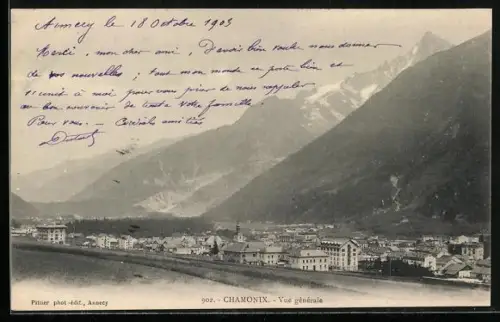 Annecy le 18 Octobre 1903
Merci, mon cher ami, d'avoir bien voulu nous donner
de vos nouvelles; tout mon monde se porte bien et
s'unit à moi pour vous prier de nous rappeler
au bon souvenir de toute votre famille
Pour vous - Cordiales amitiés
902. - CHAMONIX. - Vue générale
Pittier phot-édit., Annecy